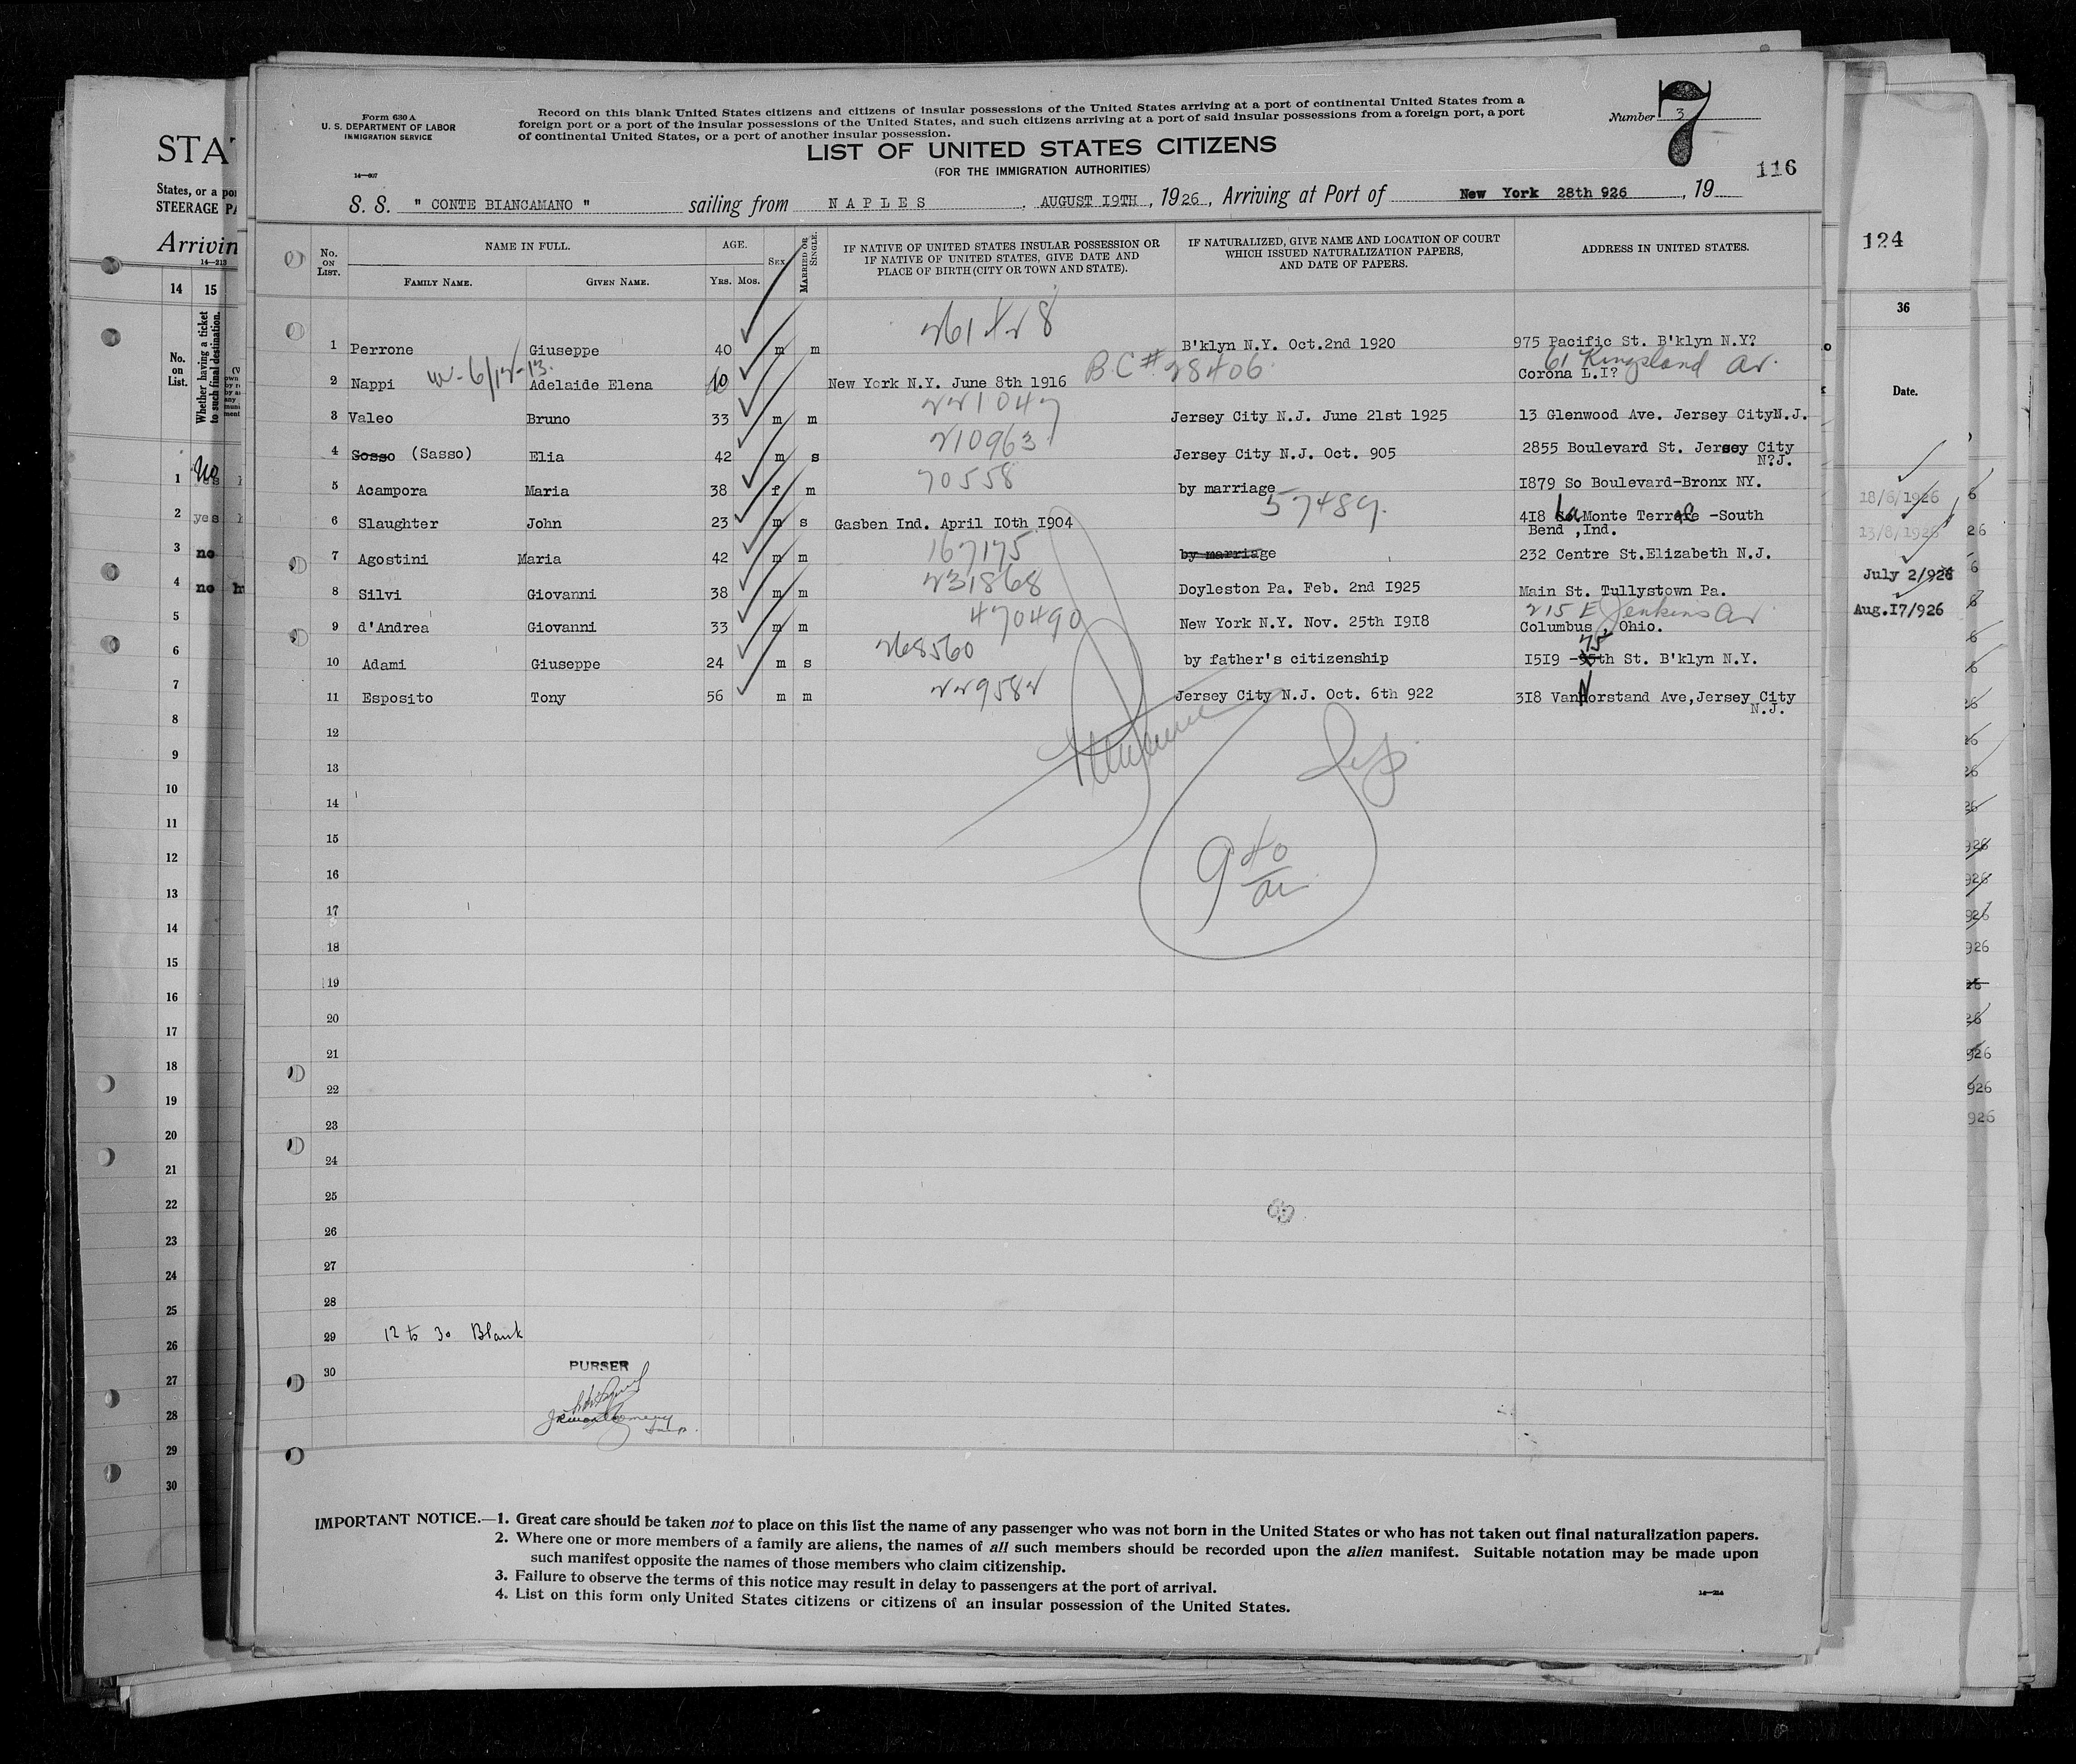 Form 630 A
U. S. DEPARTMENT OF LABOR
IMMIGRATION SERVICE
14—807
Record on this blank United States citizens and citizens of insular possessions of the United States arriving at a port of continental United States from a
foreign port or a port of the insular possessions of the United States, and such citizens arriving at a port of said insular possessions from a foreign port, a port
of continental United States, or a port of another insular possession.
Number 3
7
116
LIST OF UNITED STATES CITIZENS
(FOR THE IMMIGRATION AUTHORITIES)
S. S. " CONTE BIANCAMANO " sailing from NAPLES, AUGUST I9TH, 1926, Arriving at Port of New York 28th 926, 19
No. ON LIST.
NAME IN FULL.
FAMILY NAME. GIVEN NAME.
AGE.
YRS. MOS.
SEX
MARRIED OR SINGLE.
IF NATIVE OF UNITED STATES INSULAR POSSESSION OR
IF NATIVE OF UNITED STATES, GIVE DATE AND
PLACE OF BIRTH (CITY OR TOWN AND STATE).
IF NATURALIZED, GIVE NAME AND LOCATION OF COURT
WHICH ISSUED NATURALIZATION PAPERS,
AND DATE OF PAPERS.
ADDRESS IN UNITED STATES.
1 Perrone Giuseppe 40 m m B'klyn N.Y. Oct.2nd 1920 975 Pacific St. B'klyn N.Y?
61 Kingsland Av.
2 Nappi Adelaide Elena 10 New York N.Y. June 8th 1916 B.C# 28406 Corona L.I?
221047
3 Valeo Bruno 33 m m Jersey City N.J. June 21st 1925 13 Glenwood Ave. Jersey CityN.J.
210963
4 Sosso (Sasso) Elia 42 m s Jersey City N.J. Oct. 905 2855 Boulevard St. Jersey City
N?J.
70558
5 Acampora Maria 38 f m by marriage I879 So Boulevard-Bronx NY.
57489
6 Slaughter John 23 m s Gasben Ind. April I0th I904 4I8 La Monte Terrace -South
Bend ,Ind.
167175
7 Agostini Maria 42 m m by marriage 232 Centre St.Elizabeth N.J.
231868
8 Silvi Giovanni 38 m m Doyleston Pa. Feb. 2nd I925 Main St. Tullystown Pa.
470490 215 E Jenkins Av
9 d'Andrea Giovanni 33 m m New York N.Y. Nov. 25th I9I8 Columbus , Ohio.
268560
10 Adami Giuseppe 24 m s by father's citizenship I5I9 -75th St. B'klyn N.Y.
229582
11 Esposito Tony 56 m m Jersey City N.J. Oct. 6th 922 3I8 VanHorstand Ave,Jersey City
N.J.
12
13
14
15
16
17
18
19
20
21
22
23
24
25
26
27
28
29 12 to 30 Blank
30
PURSER
IMPORTANT NOTICE.—1. Great care should be taken not to place on this list the name of any passenger who was not born in the United States or who has not taken out final naturalization papers.
2. Where one or more members of a family are aliens, the names of all such members should be recorded upon the alien manifest. Suitable notation may be made upon
such manifest opposite the names of those members who claim citizenship.
3. Failure to observe the terms of this notice may result in delay to passengers at the port of arrival.
4. List on this form only United States citizens or citizens of an insular possession of the United States.
STA
States, or a
STEERAGE
Arrivin
14—213
14 15
No. on List.
Whether having a ticket to such final destination.
1
2 yes
3 no
4 no
5
6
7
8
9
10
11
12
13
14
15
16
17
18
19
20
21
22
23
24
25
26
27
28
29
30
124
36
Date.
18/6/1926
13/8/1926
July 2/926
Aug.I7/926